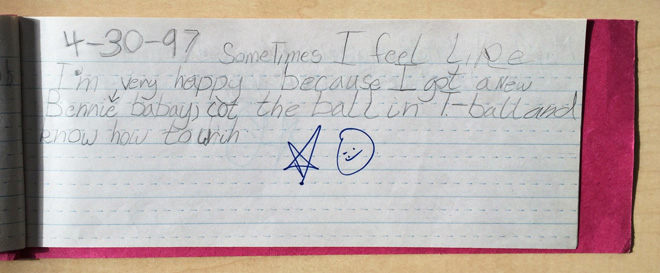 4-30-97 Sometimes I feel Like
I'm very happy because I got a New
Bennie babays, cot the ball in T-ball and
know how to